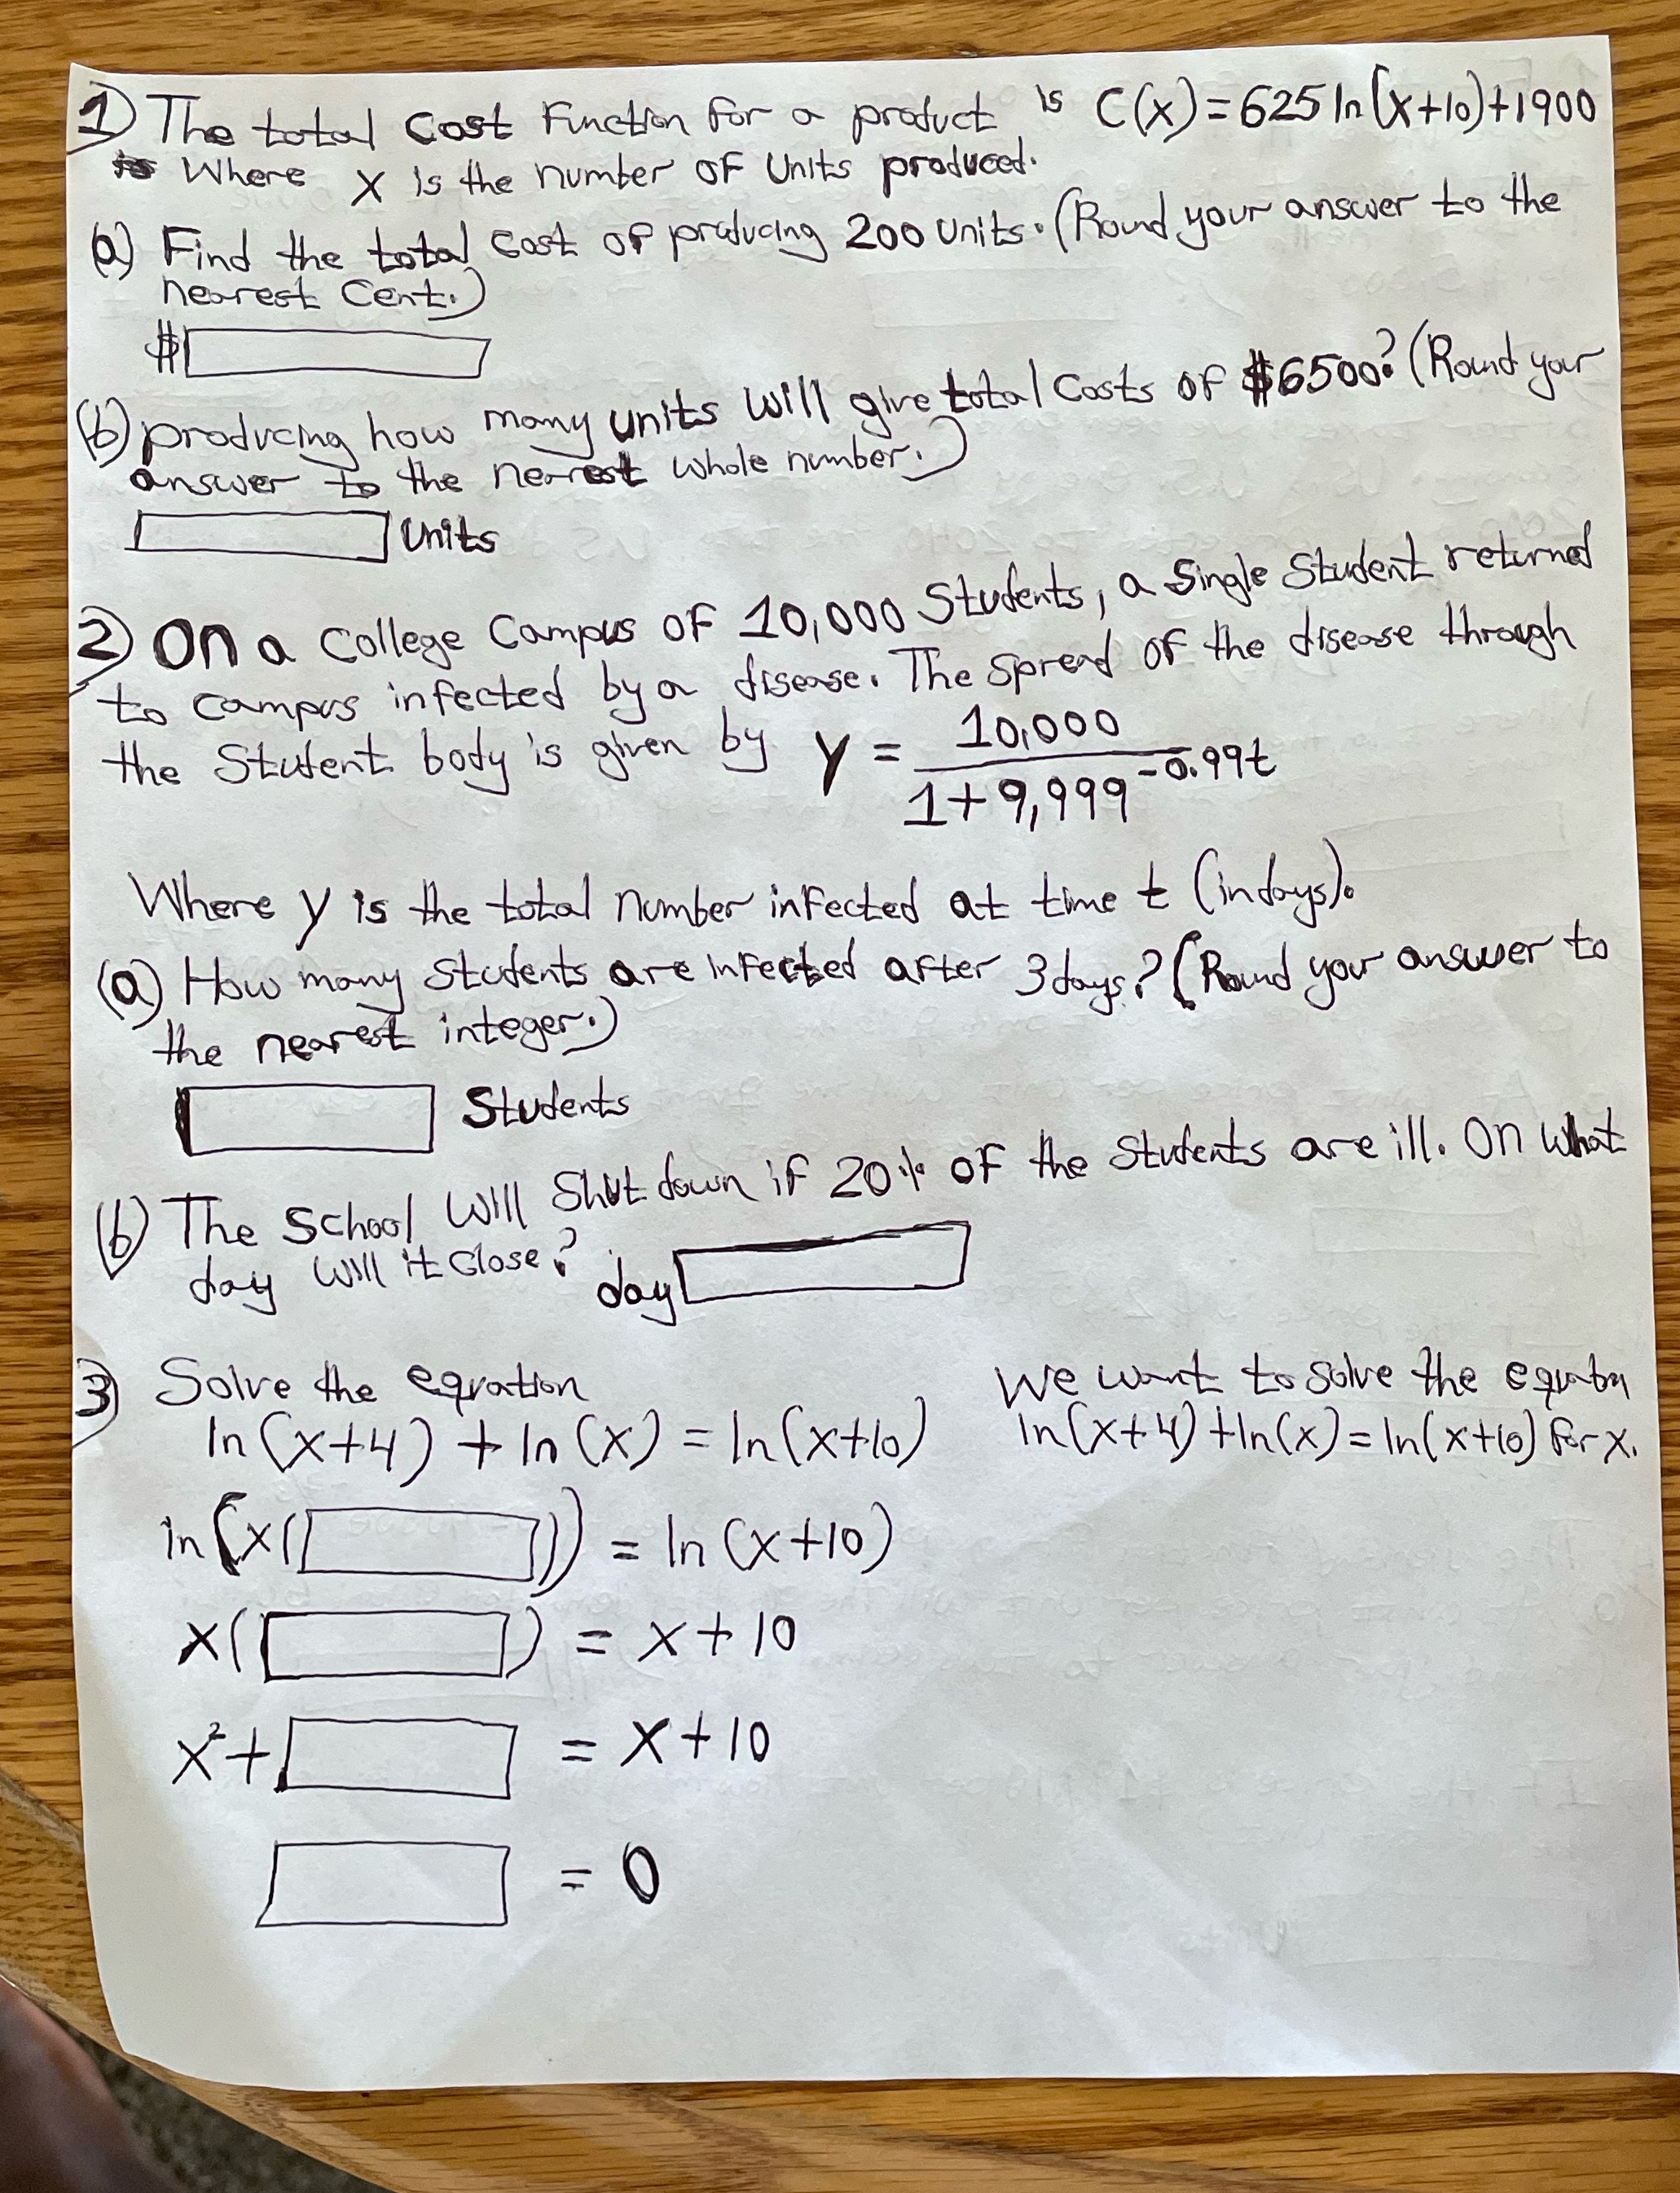 1) The total cost function for a product is C(x)=625 ln(x+10)+1900
Where x is the number of units produced.
(a) Find the total cost of producing 200 units. (Round your answer to the
nearest cent.)
$
(b) producing how many units will give total costs of $6500? (Round your
answer to the nearest whole number.)
units
2) On a college campus of 10,000 students, a single student returned
to campus infected by a disease. The spread of the disease through
the student body is given by y = 10,000 / 1+9,999^-0.99t
Where y is the total number infected at time t (in days).
(a) How many students are infected after 3 days? (Round your answer to
the nearest integer.)
Students
(b) The school will shut down if 20% of the students are ill. On what
day will it close? day
3) Solve the equation
ln(x+4) + ln(x) = ln(x+10)
ln(x( )) = ln(x+10)
x( ) = x+10
x²+ = x+10
= 0
We want to solve the equation
ln(x+4)+ln(x)=ln(x+10) for x.